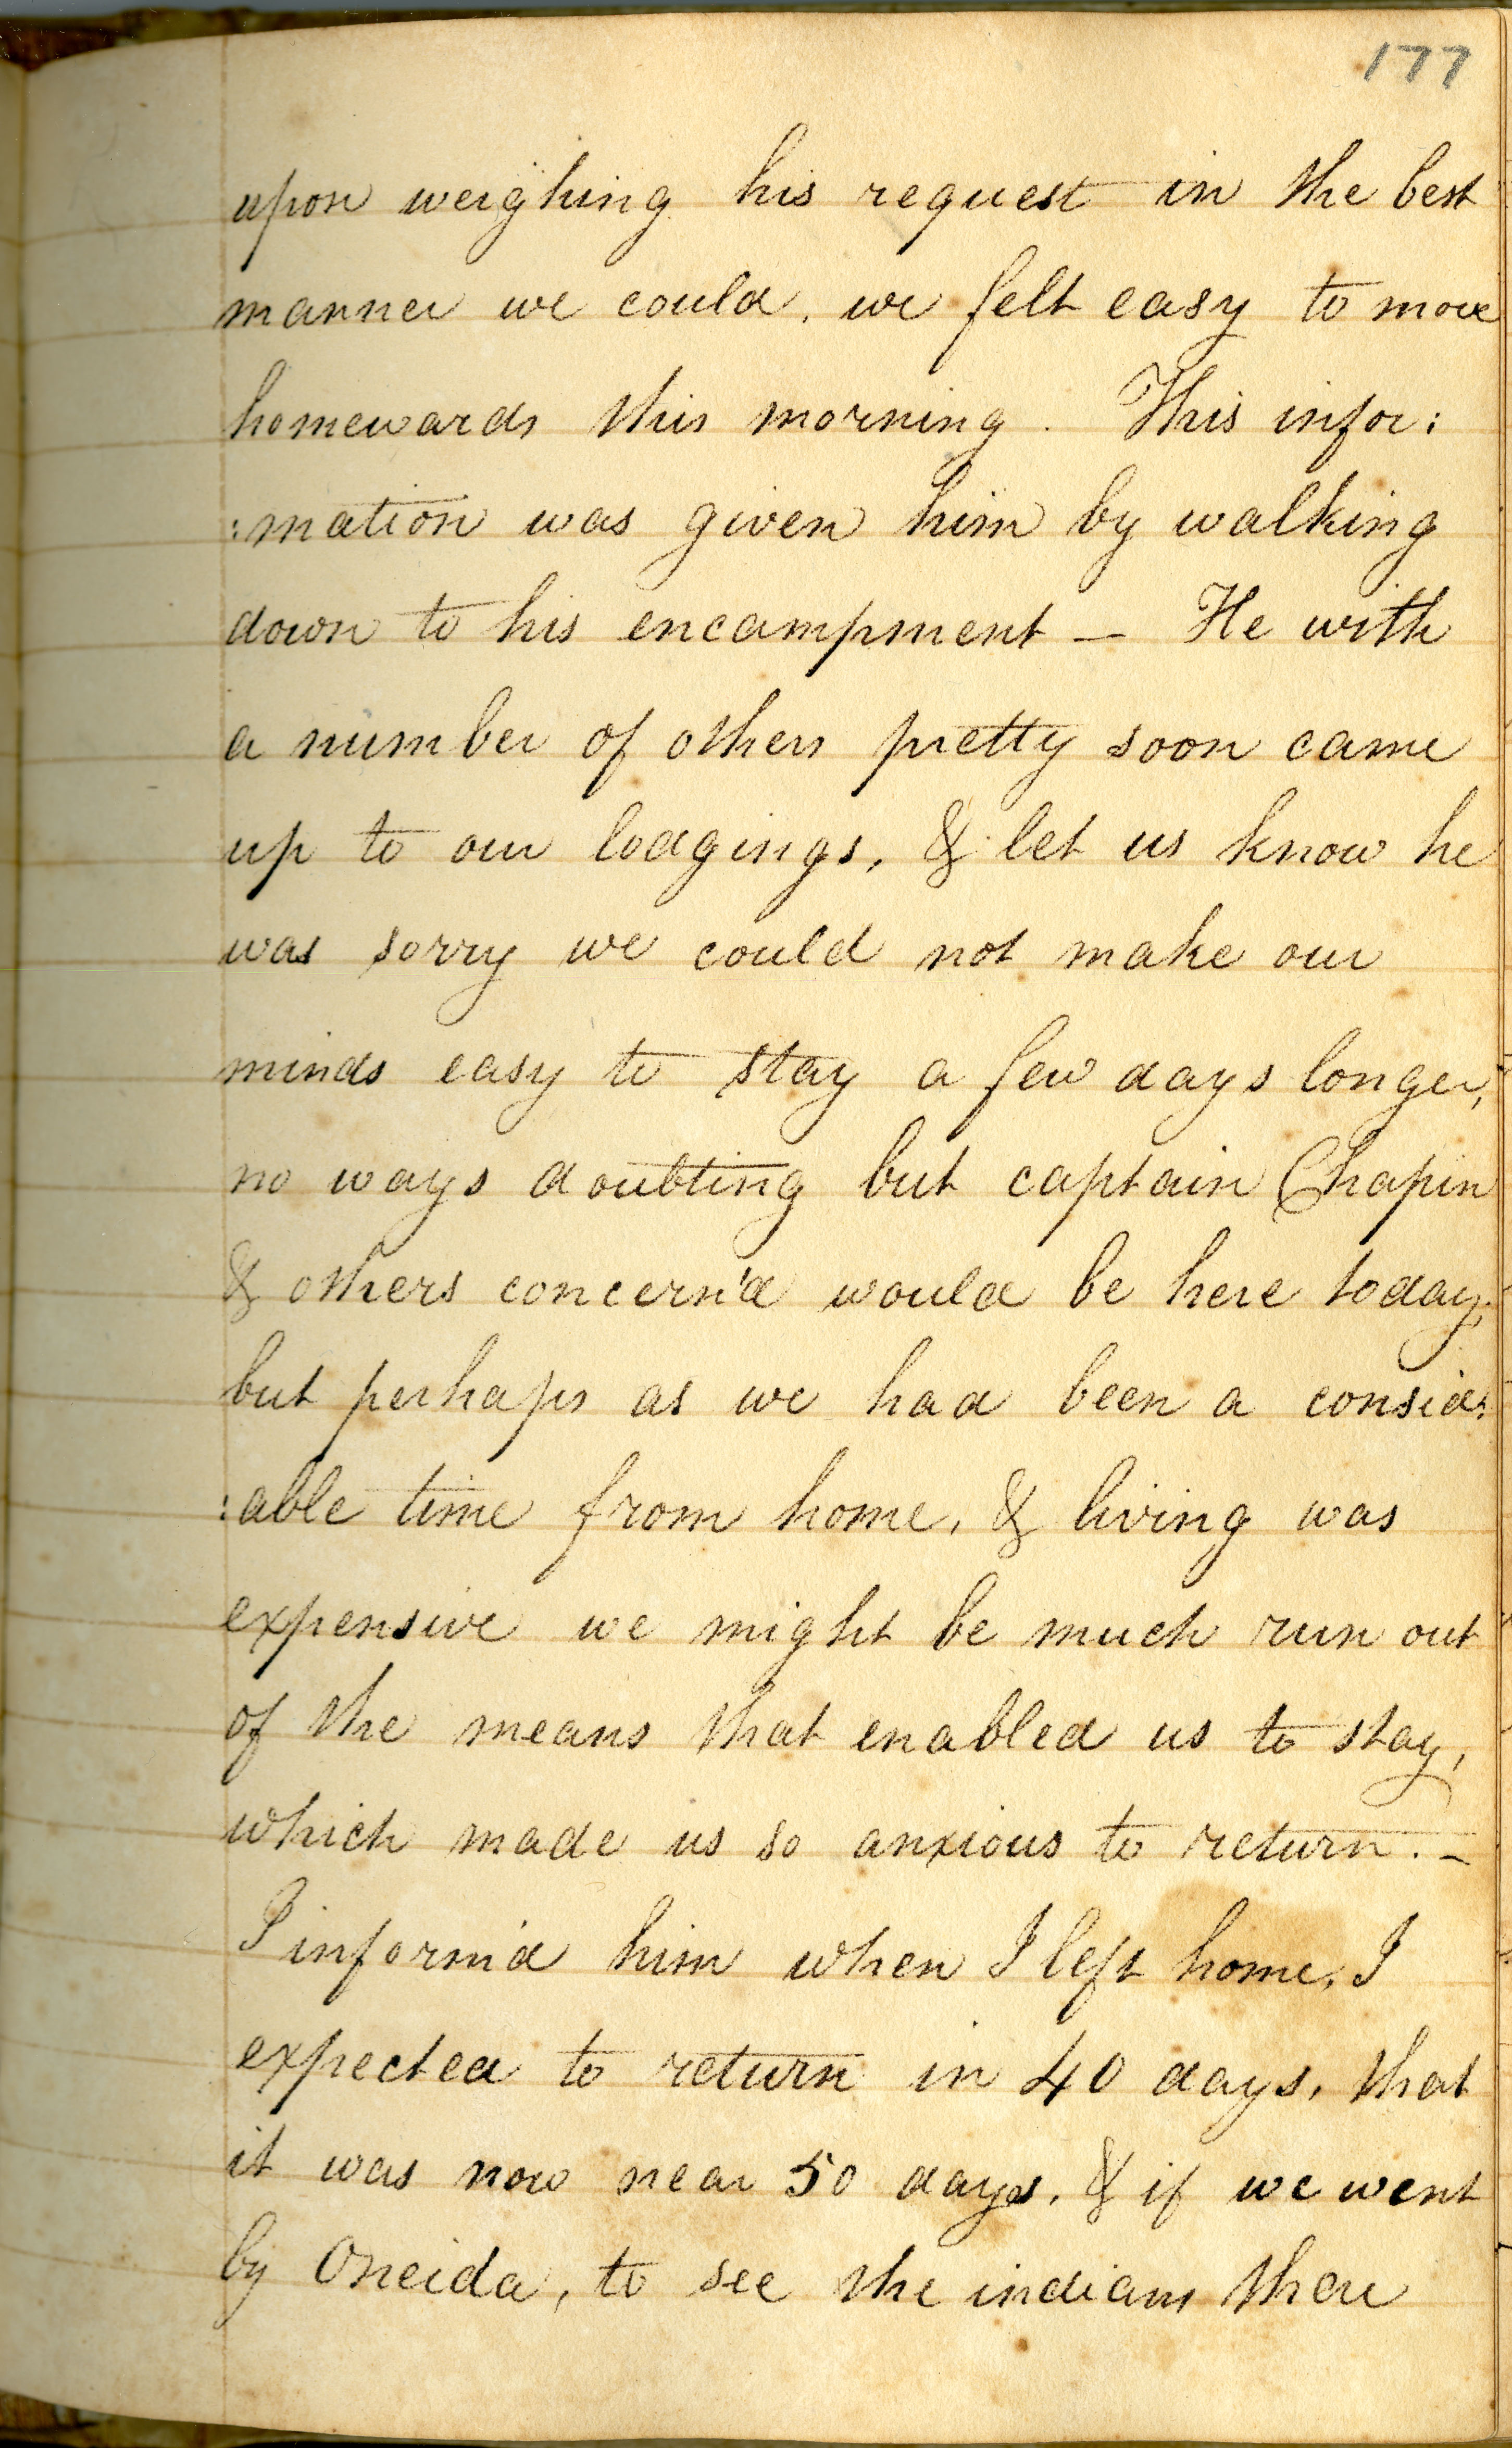 177
upon weighing his request in the best
manner we could, we felt easy to move
homewards this morning. This infor:
:mation was given him by walking
down to his encampment — He with
a number of others pretty soon came
up to our lodgings, & let us know he
was sorry we could not make our
minds easy to stay a few days longer,
no ways doubting but captain Chapin
& others concern'd would be here today;
but perhaps as we had been a consid:
:able time from home, & living was
expensive we might be much run out
of the means that enabled us to stay,
which made us so anxious to return. –
I inform'd him when I left home, I
expected to return in 40 days, that
it was now near 50 days, & if we went
by Oneida, to see the indians there